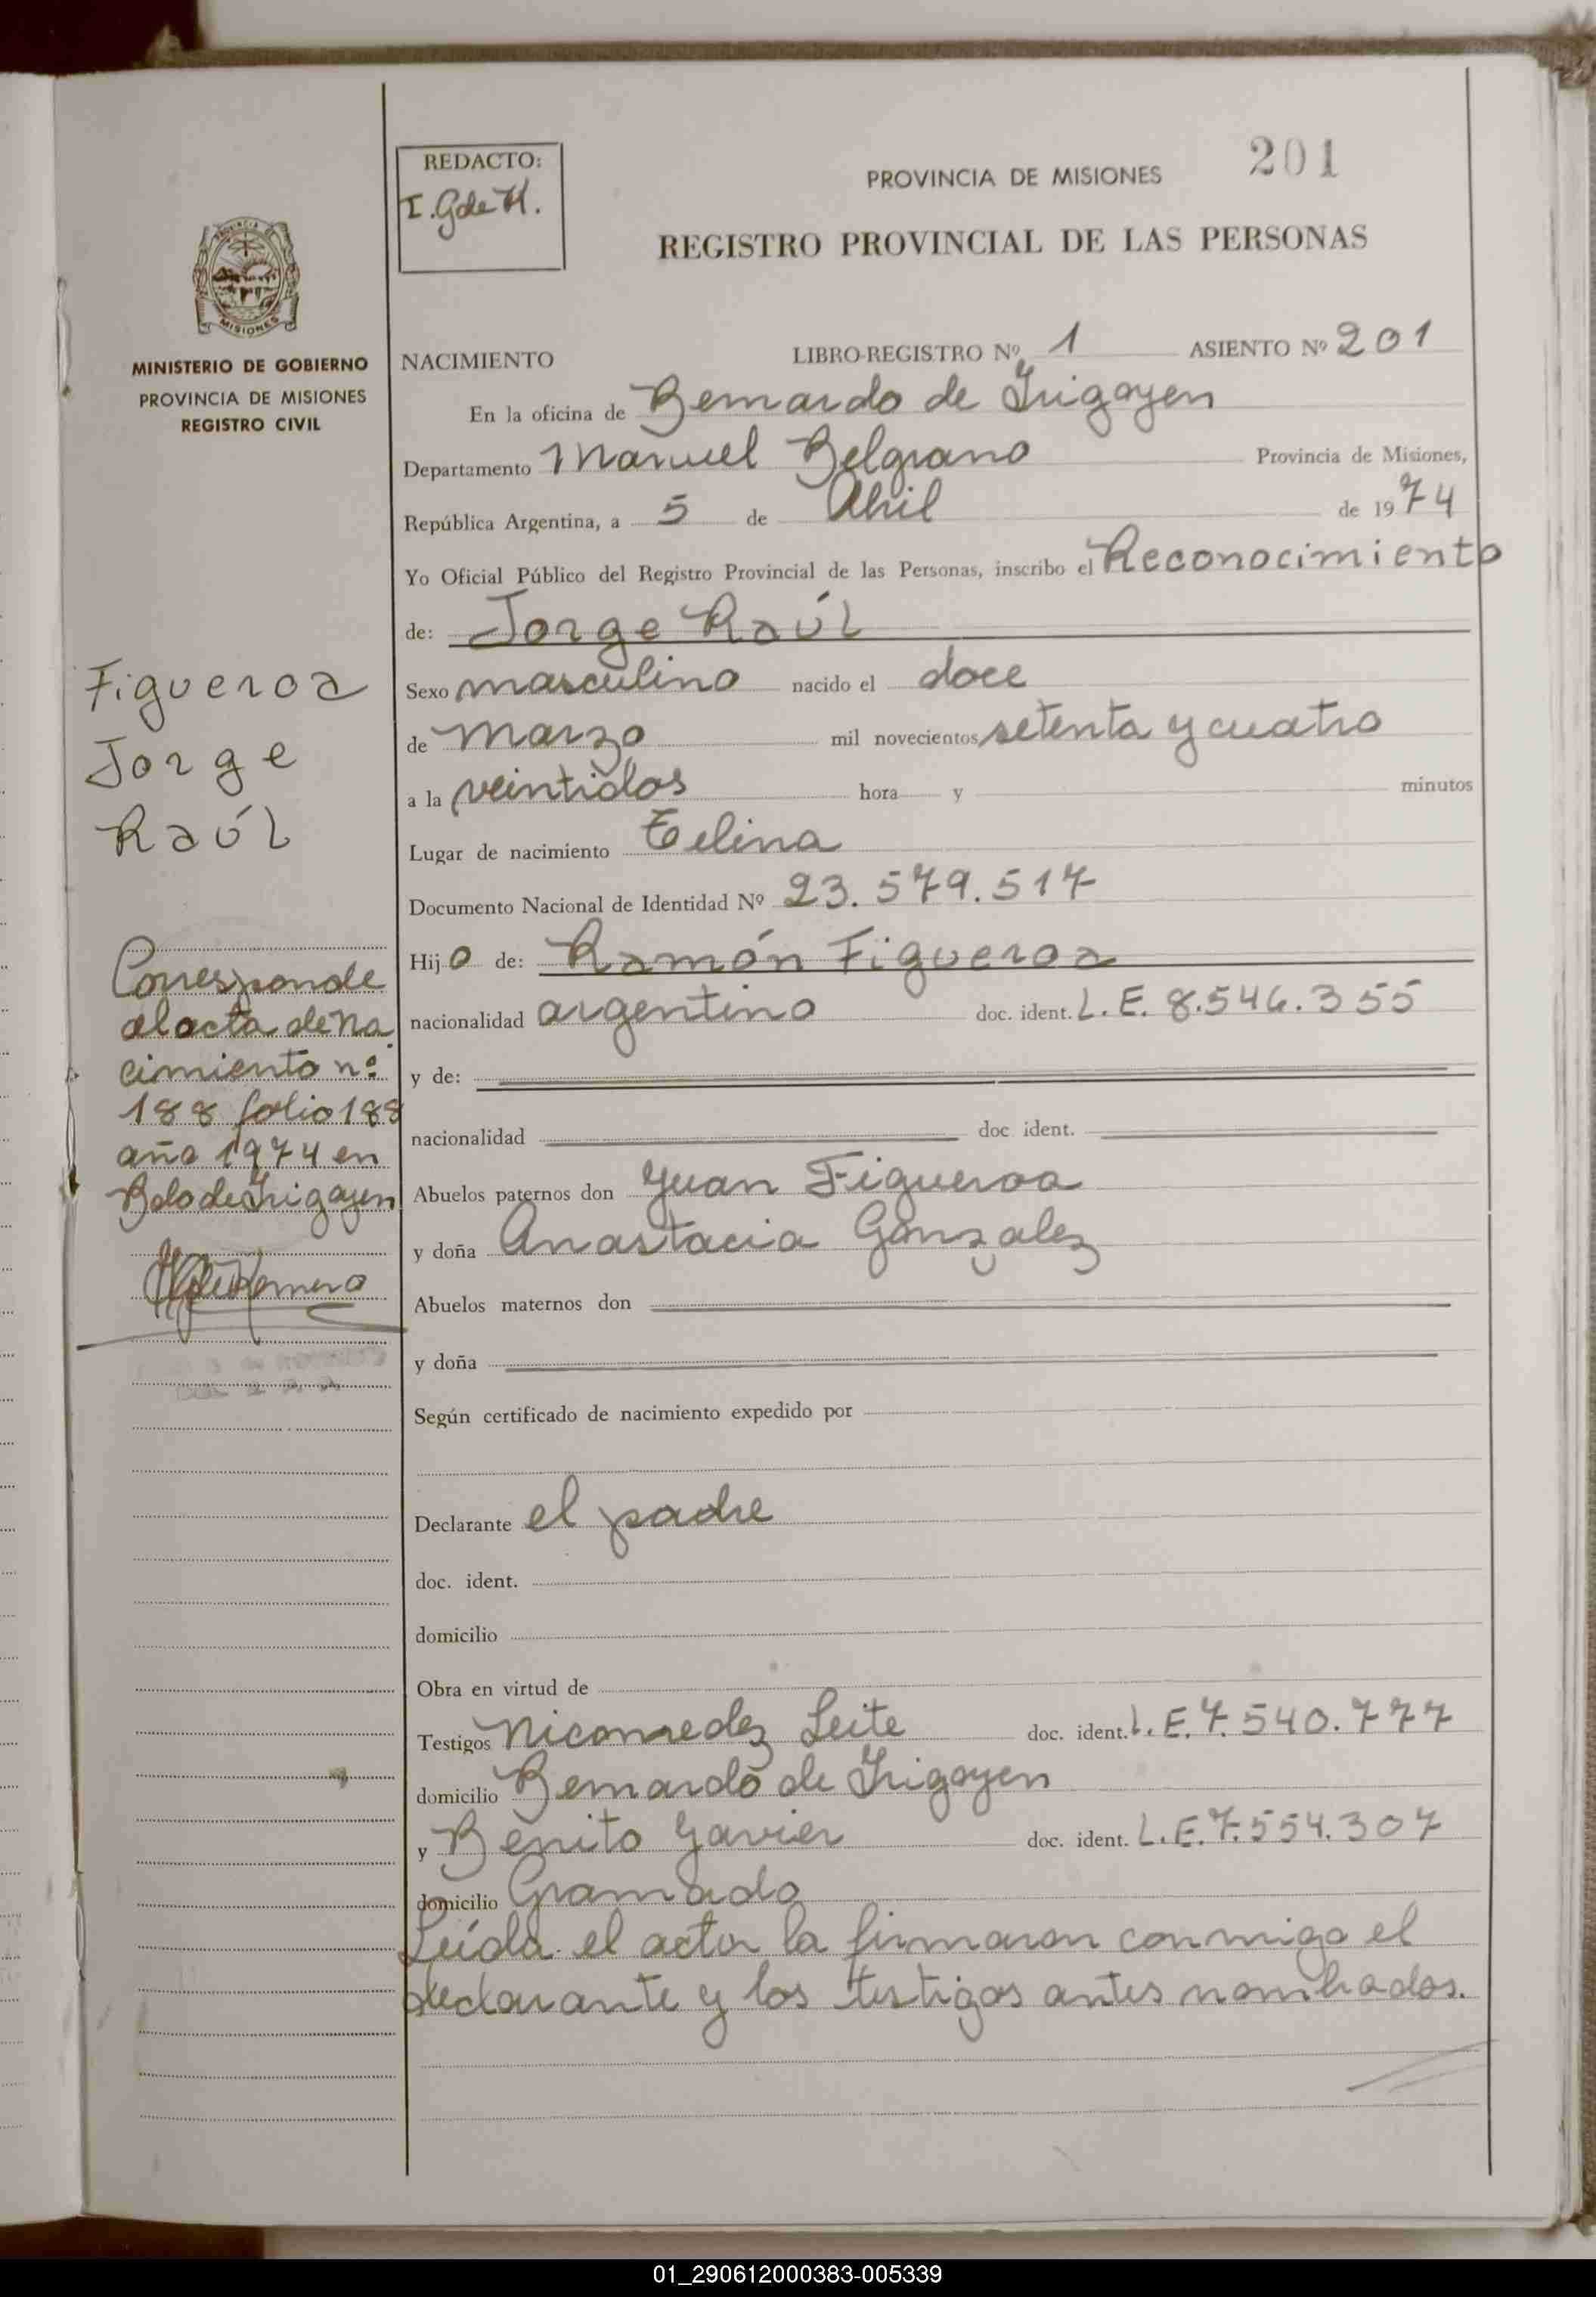 201
REDACTO:
I. G de H.
PROVINCIA DE MISIONES
REGISTRO PROVINCIAL DE LAS PERSONAS
PROVINCIA DE
MISIONES
MINISTERIO DE GOBIERNO
PROVINCIA DE MISIONES
REGISTRO CIVIL
NACIMIENTO LIBRO-REGISTRO Nº 1 ASIENTO Nº 201
En la oficina de Bernardo de Irigoyen
Departamento Manuel Belgrano Provincia de Misiones,
República Argentina, a 5 de Abril de 1974
Yo Oficial Público del Registro Provincial de las Personas, inscribo el Reconocimiento
de: Jorge Raúl
Figueroa
Jorge
Raúl
Sexo masculino nacido el doce
de marzo mil novecientos setenta y cuatro
a la veintidos hora y minutos
Lugar de nacimiento
Documento Nacional de Identidad Nº 23.579.517
Hijo de: Ramón Figueroa
nacionalidad argentino doc. ident. L.E. 8.546.355
y de:
nacionalidad doc ident.
Corresponde
al acta de na
cimiento nº
188 folio 188
año 1974 en
Bdo de Irigoyen
Abuelos paternos don Juan Figueroa
y doña Anastacia Gonzalez
Abuelos maternos don
y doña
Según certificado de nacimiento expedido por
Declarante el padre
doc. ident.
domicilio
Obra en virtud de
Testigos Nicomedez Leite doc. ident. L.E. 7.540.777
domicilio Bernardo de Irigoyen
y Benito Gavier doc. ident. L.E. 7.554.307
domicilio Gramado
Leída el acta la firmaron conmigo el
declarante y los testigos antes nombrados.
01_290612000383-005339